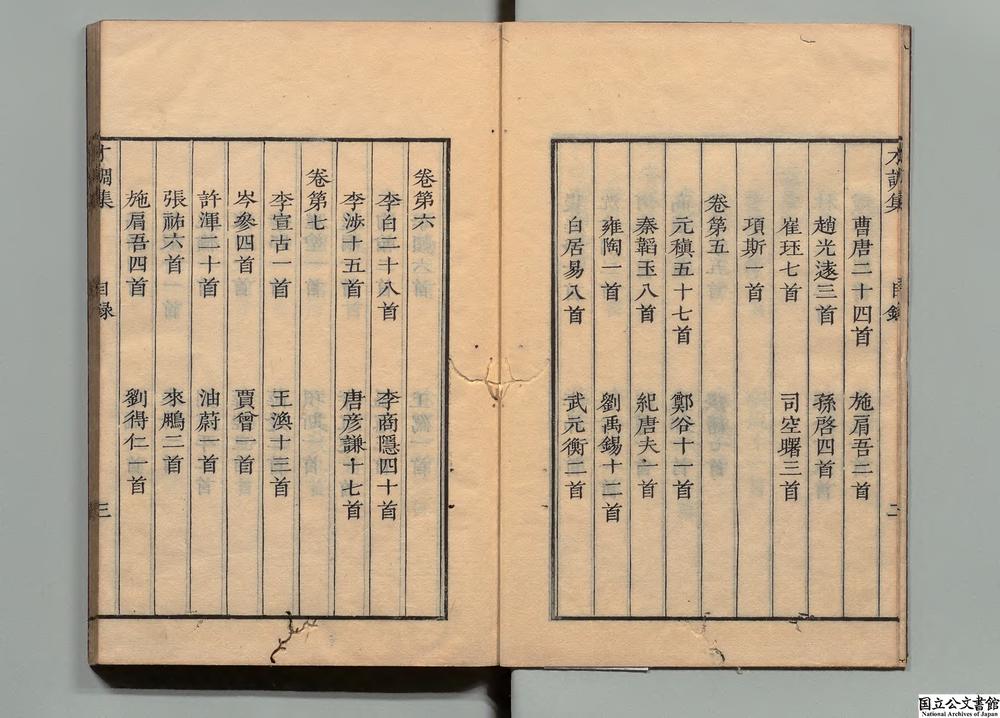 才調集 目錄 二
曹唐二十四首 施肩吾二首
趙光遠三首 孫啓四首
崔珏七首 司空曙三首
項斯一首
卷第五
元稹五十七首 鄭谷十一首
秦韜玉八首 紀唐夫一首
雍陶一首 劉禹錫十二首
白居易八首 武元衡首
卷第六
李白二十八首 李商隱四十首
李涉十五首 唐彥謙十七首
卷第七
李宣古一首 王渙十三首
岑參四首 賈曾一首
許渾二十首 油蔚一首
張祐六首 來鵬二首
施肩吾四首 劉得仁首
才調集 目錄 三
国立公文書館
National Archives of Japan